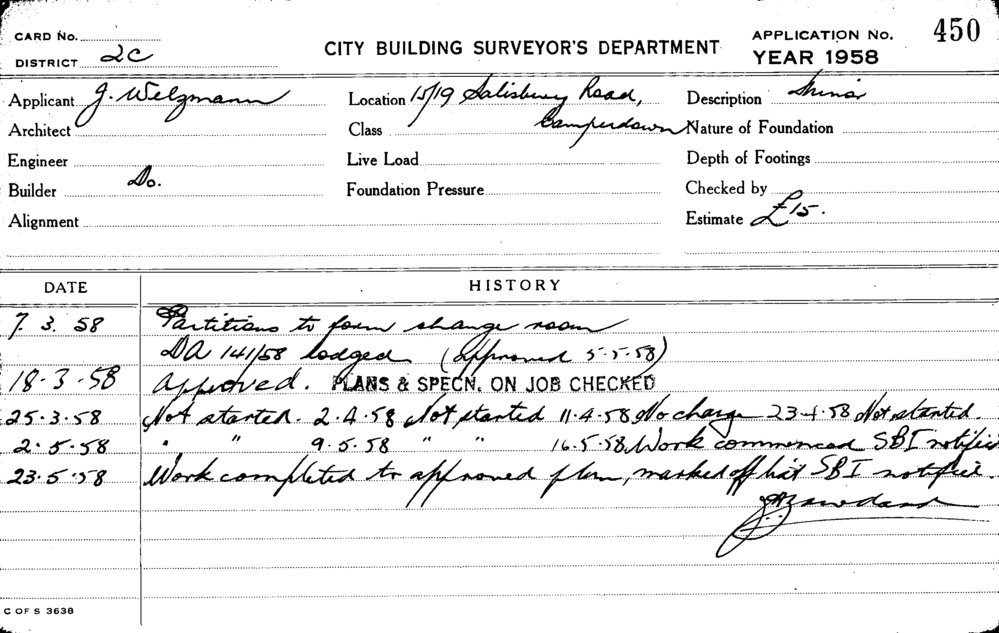 CARD No.
DISTRICT 2C
CITY BUILDING SURVEYOR'S DEPARTMENT
APPLICATION No. 450
YEAR 1958
Applicant J. Welzmann Location 15/19 Salisbury Road, Description Minor
Architect Class Camperdown Nature of Foundation
Engineer Live Load Depth of Footings
Builder Do. Foundation Pressure Checked by
Alignment Estimate £15.
DATE HISTORY
7. 3. 58 Partitions to form change room
DA 141/58 lodged (approved 5.5.58)
18.3.58 Approved. PLANS & SPECN. ON JOB CHECKED
25.3.58 Not started. 2.4.58 Not started 11.4.58 No change 23.4.58 Not started.
2.5.58 " " 9.5.58 " " 16.5.58 Work commenced SBI notified
23.5.58 Work completed to approved plan, marked off list SBI notified.
C OF S 3638